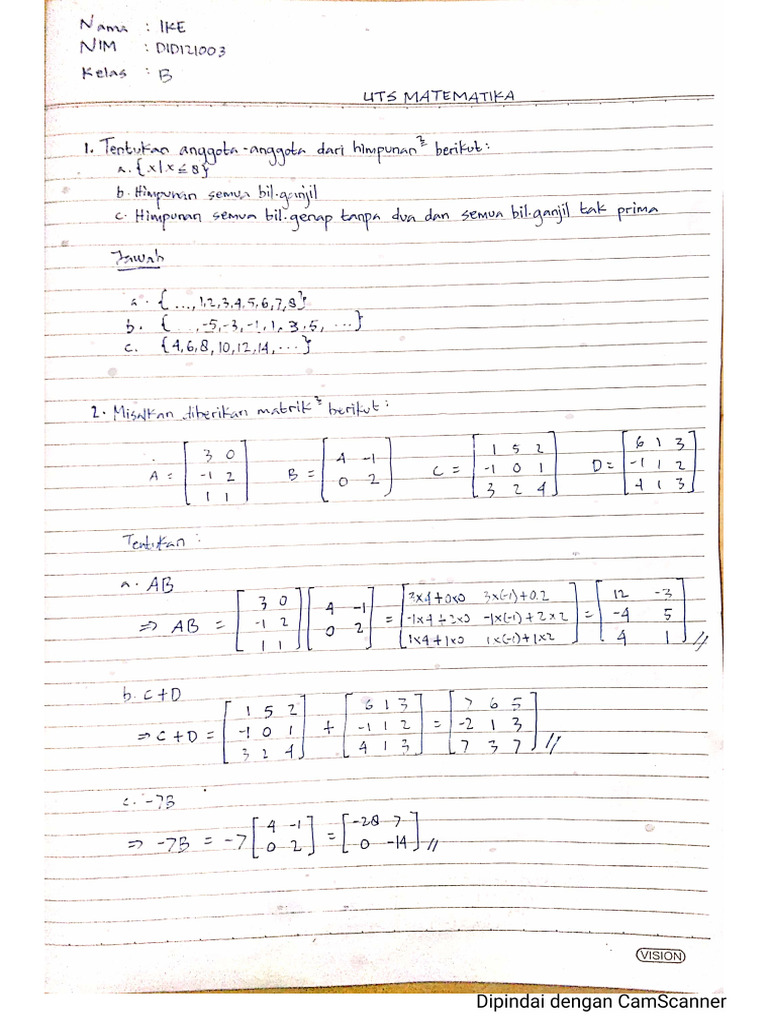 Nama : IKE
NIM : D1D121003
Kelas : B
UTS MATEMATIKA
1. Tentukan anggota-anggota dari himpunan² berikut:
a. {x|x ≤ 8}
b. Himpunan semua bil.ganjil
c. Himpunan semua bil.genap tanpa dua dan semua bil.ganjil tak prima
Jawab
a. {...,1,2,3,4,5,6,7,8}
b. {...,-5,-3,-1,1,3,5,...}
c. {4,6,8,10,12,14,...}
2. Misalkan diberikan matrik² berikut:
A = [3 0; -1 2; 1 1] B = [4 -1; 0 2] C = [1 5 2; -1 0 1; 3 2 4] D = [6 1 3; -1 1 2; 4 1 3]
Tentukan :
a. AB
⇒ AB = [3 0; -1 2; 1 1] [4 -1; 0 2] = [3x4+0x0 3x(-1)+0.2; -1x4+2x0 -1x(-1)+2x2; 1x4+1x0 1x(-1)+1x2] = [12 -3; -4 5; 4 1] //
b. C+D
⇒ C+D = [1 5 2; -1 0 1; 3 2 4] + [6 1 3; -1 1 2; 4 1 3] = [7 6 5; -2 1 3; 7 3 7] //
c. -7B
⇒ -7B = -7 [4 -1; 0 2] = [-28 7; 0 -14] //
VISION
Dipindai dengan CamScanner